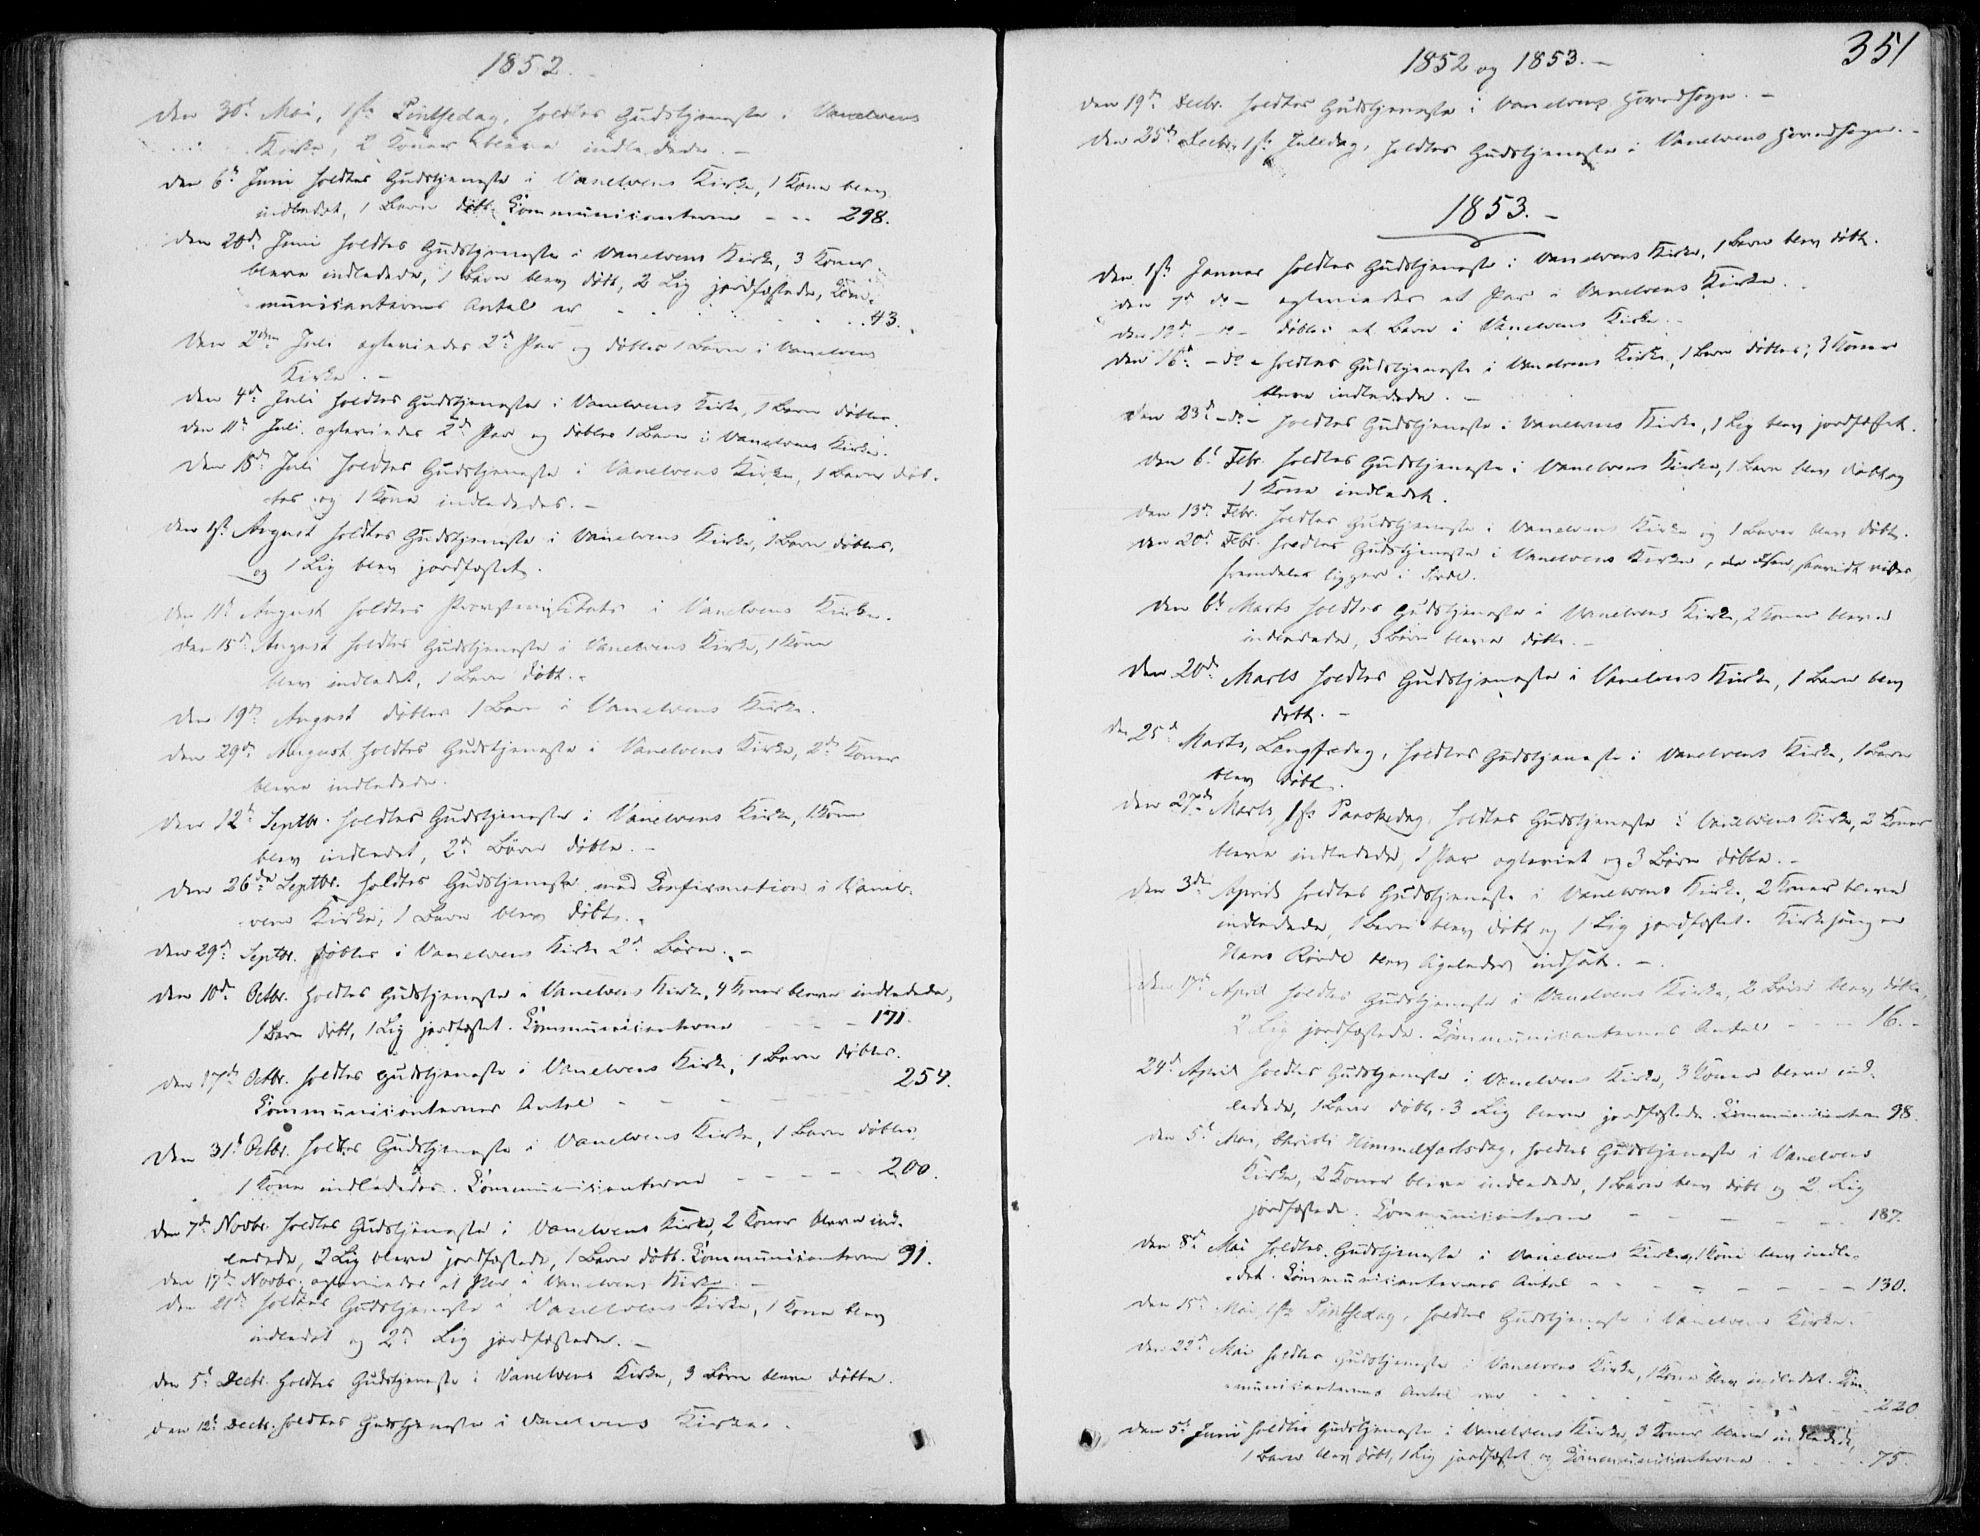 1852.
den 30t Mai, 1ste Pintsedag, holdtes Gudstjeneste i Vanelvens
Kirke, 2 Koner bleve indledede. -
den 6t Juni holdtes Gudstjeneste i Vanelvens Kirke, 1 Kone blev
indledet, 1 Barn døbt. Communicanterne - - - 298.
den 20d Juni holdtes Gudstjeneste i Vanelvens Kirke, 3 Koner
bleve indledede, 1 Barn blev døbt, 2 Lig jordfæstede, Com-
municanternes Antal er - - - - 43.
Den 2den Juli egteviedes 2de Par og døbtes 1 Barn i Vanelvens
Kirke. -
den 4de Juli holdtes Gudstjeneste i Vanelvens Kirke, 1 Barn døbtes.
den 11te Juli egteviedes 2de Par og døbtes 1 Barn i Vanelvens Kirke.
den 18de Juli holdtes Gudstjeneste i Vanelvens Kirke, 1 Barn døb-
tes og 1 Kone indlededes. -
den 1ste August holdtes Gudstjeneste i Vanelvens Kirke, 1 Barn døbtes,
og 1 Lig blev jordfæstet.
den 11te August holdtes Provstevisitats i Vanelvens Kirke.
den 15de August holdtes Gudstjeneste i Vanelvens Kirke, 1 Kone
blev indledet, 1 Barn døbt. -
den 19de August døbtes 1 Barn i Vanelvens Kirke.
den 29de August holdtes Gudstjeneste i Vanelvens Kirke, 2de Koner
bleve indledede.
den 12te Septbr. holdtes Gudstjeneste i Vanelvens Kirke, 1 Kone
blev indledet, 2de Børn døbte. -
den 26de Septbr. holdtes Gudstjeneste med Confirmation i Vanel-
vens Kirke, 1 Barn blev døbt. -
den 29de Septbr. døbtes i Vanelvens Kirke 2de Børn. -
den 10de Octbr. holdtes Gudstjeneste i Vanelvens Kirke, 4 Koner bleve indledede,
1 Barn døbt, 1 Lig jordfæstet. Communicanterne - - - 171.
den 17de Octbr. holdtes Gudstjeneste i Vanelvens Kirke, 1 Barn døbtes.
Communicanternes Antal - - - - 254.
den 31t Octbr. holdtes Gudstjeneste i Vanelvens Kirke, 1 Barn døbtes,
1 Kone indlededes. Communicanterne - - - - 200.
den 7de Novbr. holdtes Gudstjeneste i Vanelvens Kirke, 2 Koner bleve ind-
ledede, 2 Lig bleve jordfæstede, 1 Barn døbt. Communicanterne 91.
den 17de Novbr. egteviedes et Par i Vanelvens Kirke. -
den 21de holdtes Gudstjeneste i Vanelvens Kirke, 1 Kone blev
indledet og 2de Lig jordfæstede. -
den 5t Decbr. holdtes Gudstjeneste i Vanelvens Kirke, 3 Børn bleve døbte.
den 12t Decbr. holdtes Gudstjeneste i Vanelvens Kirke. -
351
1852 og 1853. -
den 19de Decbr. holdtes Gudstjeneste i Vanelvens Hovedsogn. -
den 25de Decbr. 1ste Juledag, holdtes Gudstjeneste i Vanelvens Hovedsogn. -
1853. -
den 1ste Januar holdtes Gudstjeneste i Vanelvens Kirke, 1 Barn blev døbt.
den 7d do - egteviedes et Par i Vanelvens Kirke.
den 12d - do - døbtes et Barn i Vanelvens Kirke. -
den 16d - do - holdtes Gudstjeneste i Vanelvens Kirke, 1 Barn døbtes; 3 Koner
bleve indledede. -
den 23d - do - holdtes Gudstjeneste i Vanelvens Kirke, 1 Lig blev jordfæstet.
den 6t Febr. holdtes Gudstjeneste i Vanelvens Kirke, 1 Barn blev døbt og
1 Kone indledet.
den 13de Febr. holdtes Gudstjeneste i Vanelvens Kirke og 1 Barn blev døbt.
den 20d Febr. holdtes Gudstjeneste i Vanelvens Kirke, da
fremdeles ligger i
den 6te Marts holdtes Gudstjeneste i Vanelvens Kirke, 2 Koner bleve
indledede, 3 Børn bleve døbte. -
den 20de Marts holdtes Gudstjeneste i Vanelvens Kirke, 1 Barn blev
døbt. -
den 25d Marts, Langfredag, holdtes Gudstjeneste i Vanelvens Kirke, 1 Barn
blev døbt.
den 27de Marts, 1ste Paaskedag, holdtes Gudstjeneste i Vanelvens Kirke, 2 Koner
bleve indledede, 1 Par egteviet og 3 Børn døbte. -
den 3de April holdtes Gudstjeneste i Vanelvens Kirke, 2 Koner bleve
indledede, 1 Barn blev døbt og 1 Lig jordfæstet. Kirkesanger
Hans blev ligeledes indsat. -
den 17de April holdtes Gudstjeneste i Vanelvens Kirke, 2 Børn blev døbte,
2 Lig jordfæstede. Communicanternes Antal - - - 16. -
24d April holdtes Gudstjeneste i Vanelvens Kirke, 3 Koner bleve ind-
ledede, 1 Barn døbt, 3 Lig bleve jordfæstede. Communicanterne 98.
den 5t Mai, Christi Himmelfartsdag, holdtes Gudstjeneste i Vanelvens
Kirke, 2 Koner bleve indledede, 1 Barn blev døbt og 2 Lig
jordfæstede. Communicanterne - - - - 187.
den 8d Mai holdtes Gudstjeneste i Vanelvens Kirke, 1 Kone blev indle-
det. Communicanternes Antal - - - - 130.
den 15d Mai, 1ste Pintsedag, holdtes Gudstjeneste i Vanelvens Kirke.
den 22d Mai holdtes Gudstjeneste i Vanelvens Kirke, 1 Kone blev indledet. Com-
municanternes Antal var - - - - 220
den 5t Juni holdtes Gudstjeneste i Vanelvens Kirke, 3 Koner bleve indledede,
1 Barn blev døbt, 1 Lig jordfæstet og Communicanterne - - - 75.